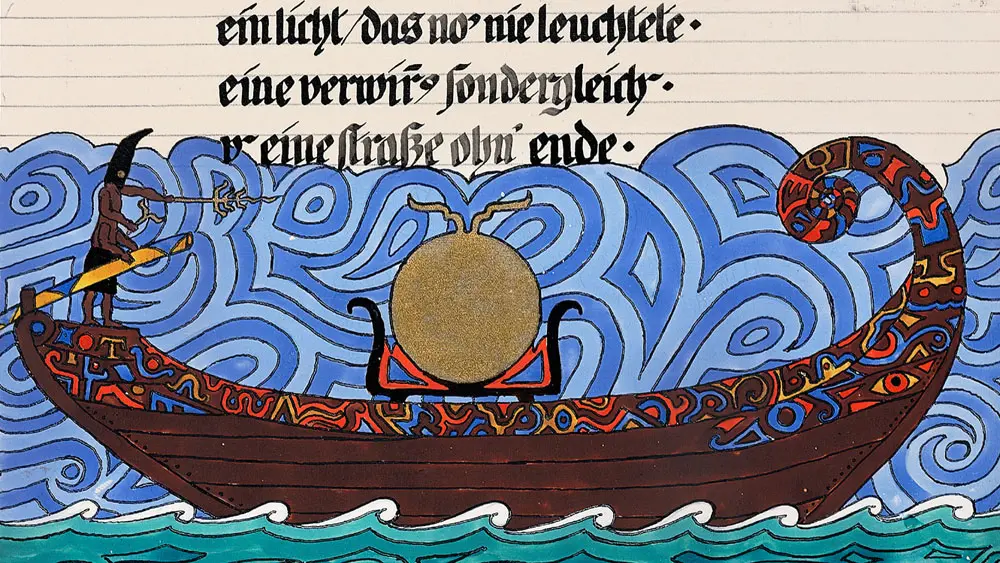 ein licht/ das no' nie leuchtete ·
eine verwirr̄' sondergleich' ·
v' eine straße ohn' ende ·